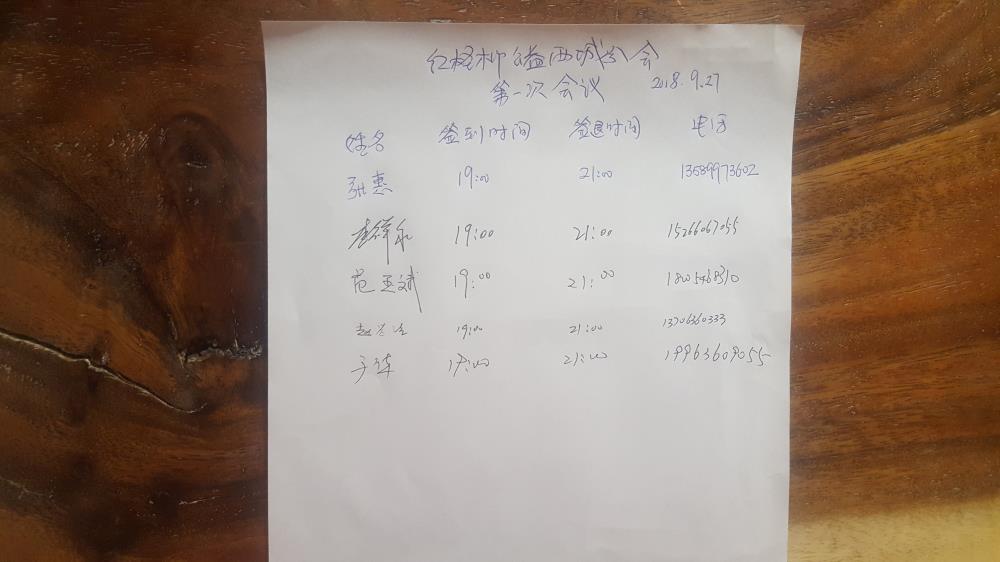 红柽柳公益西城分会
第一次会议 2018.9.27
姓名 签到时间 签退时间 电话
张惠 19:00 21:00 13589973602
李祥永 19:00 21:00 15266067055
范玉斌 19:00 21:00
赵 19:00 21:00 13706360333
19:00 21:00 19963609055